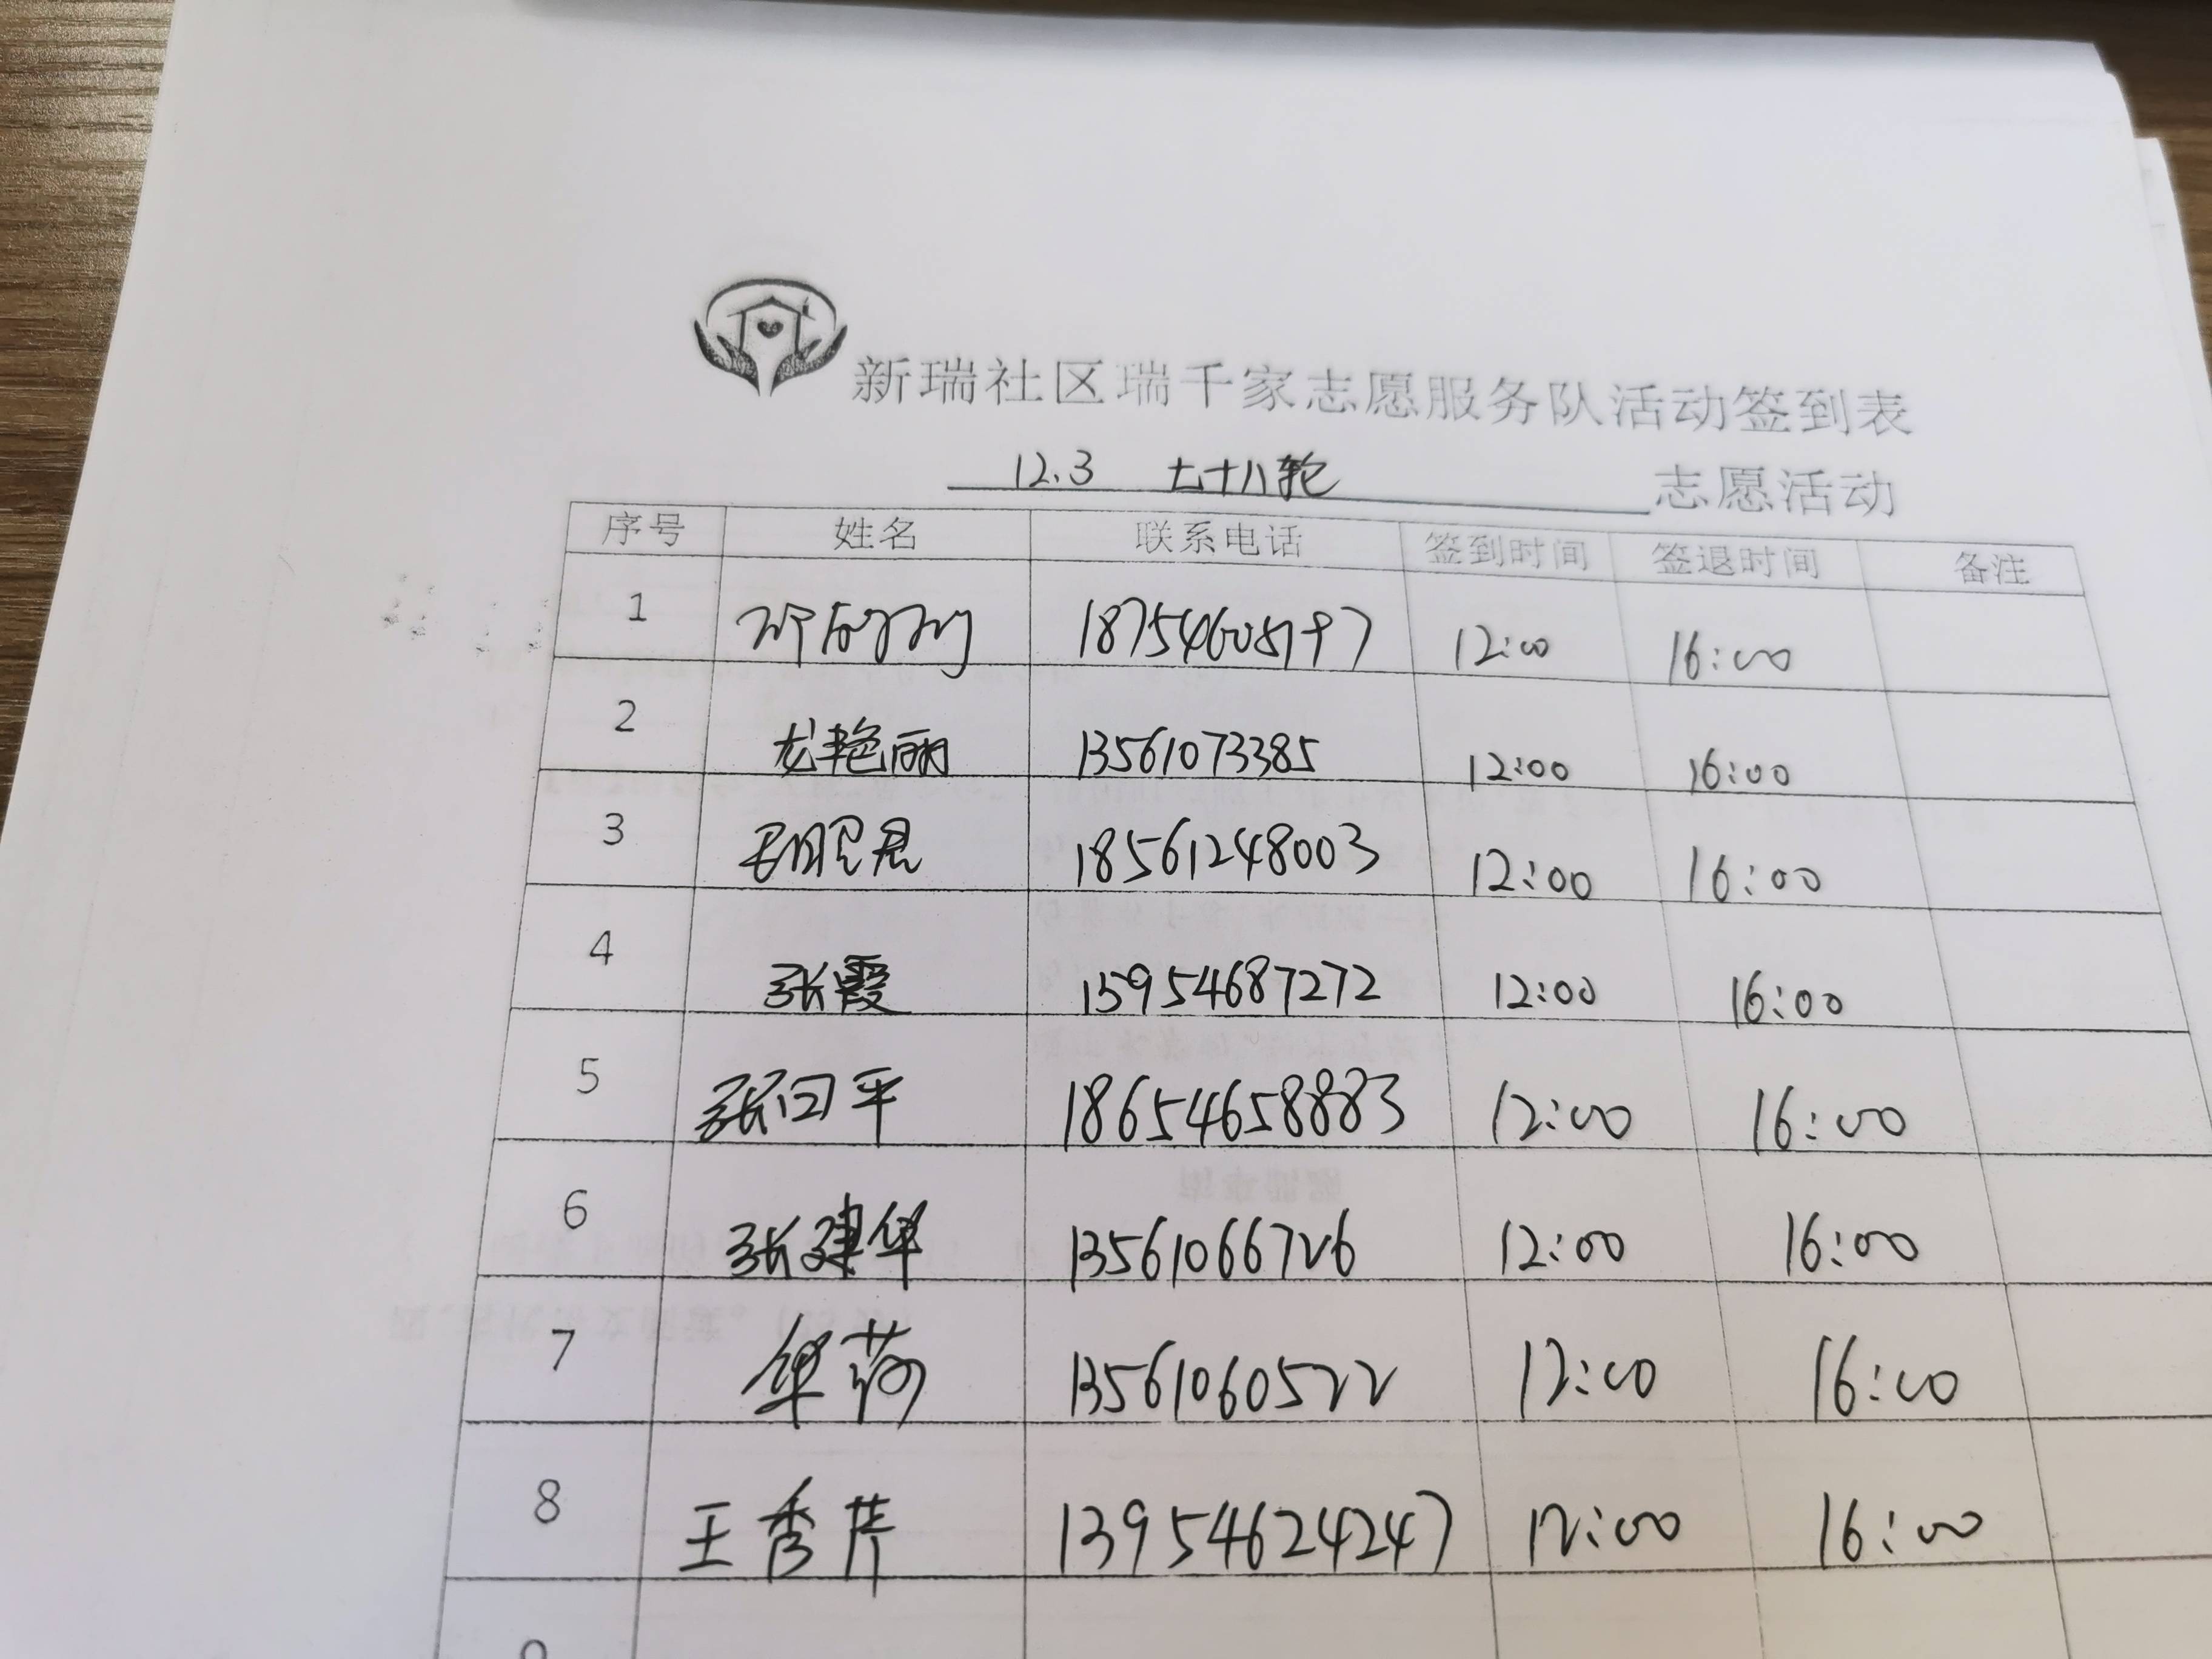 新瑞社区瑞千家志愿服务队活动签到表
12.3 七十八轮 志愿活动
序号 姓名 联系电话 签到时间 签退时间 备注
1 12:00 16:00
2 龙艳丽 13561073385 12:00 16:00
3 18561248003 12:00 16:00
4 张霞 15954687272 12:00 16:00
5 张曰平 18654658883 12:00 16:00
6 张建华 13561066726 12:00 16:00
7 华荷 13561060522 12:00 16:00
8 王秀芹 13954624247 12:00 16:00